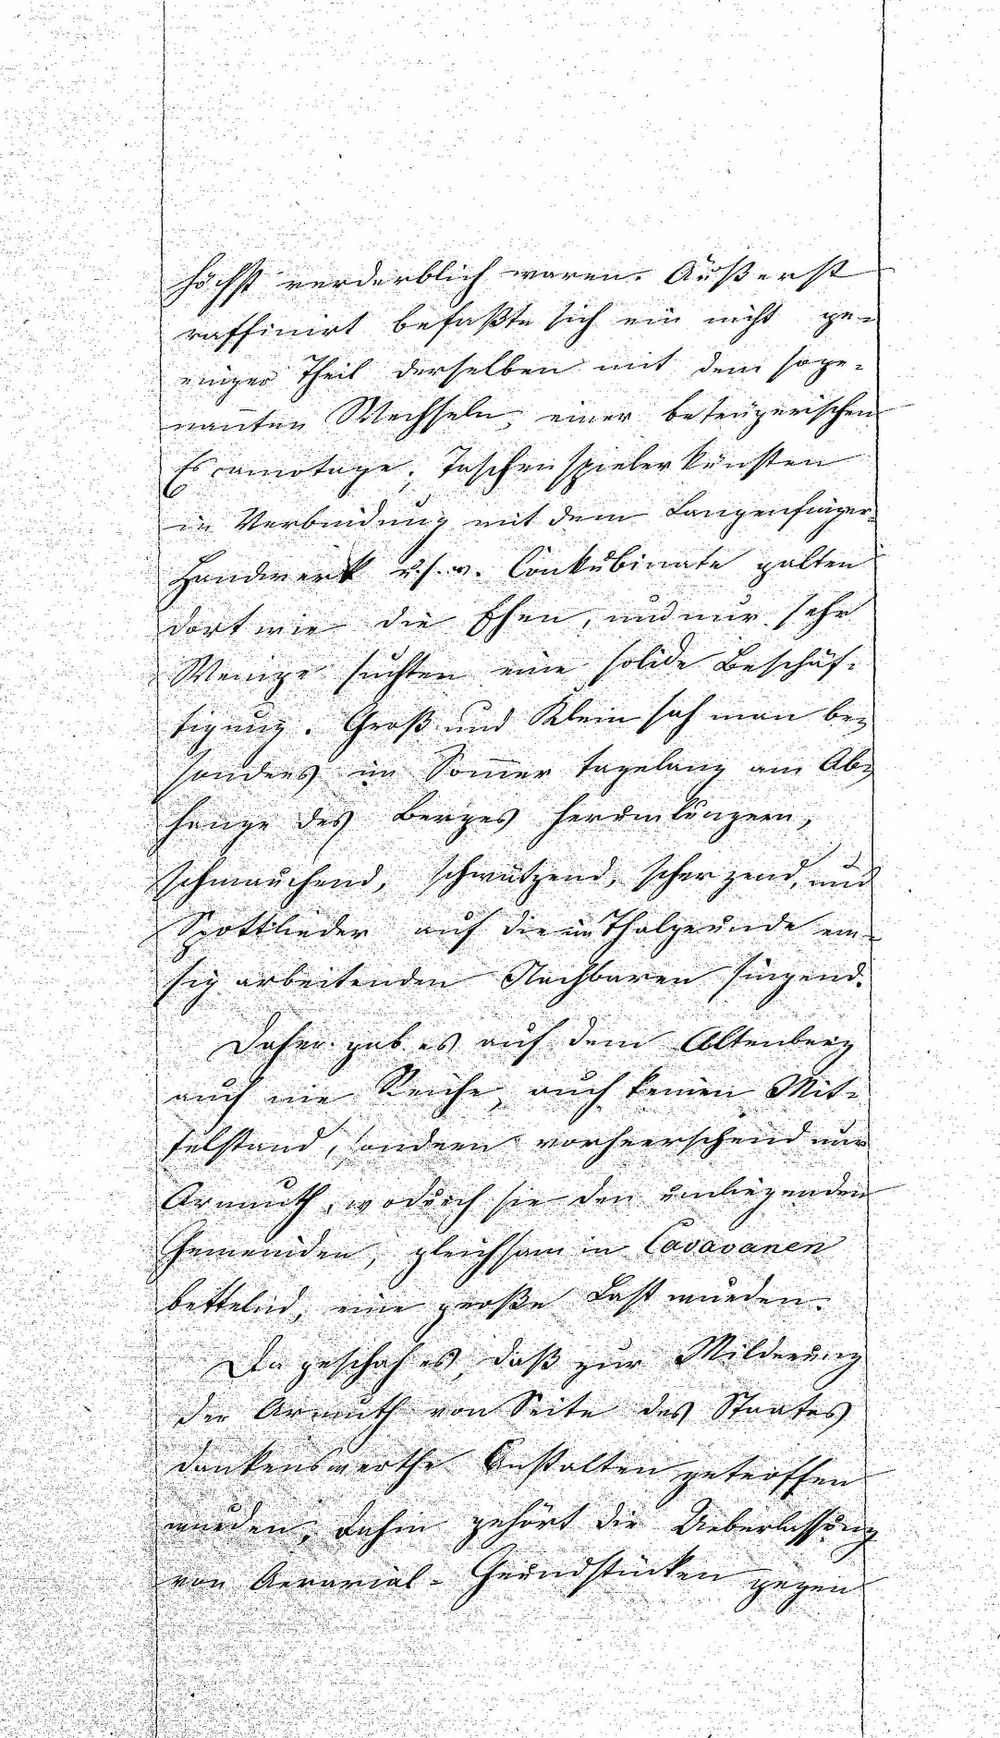 höchst verderblich waren. Äußerst
raffinirt befaßte sich ein nicht ge-
ringer Theil derselben mit dem soge-
nan̄ten Wechseln, einer betrügerischen
Escamotage, Taschenspielerkünsten
in Verbindung mit dem Langenfinger-
Handwerk u.s.w. Conkubinate galten
dort wie die Ehen, und nur sehr
Wenige suchten eine solide Beschäf-
tigung. Groß und Klein sah man be-
sonders im Som̄er tagelang am Ab-
hange des Berges herumlungern,
schmauchend, schwätzend, scherzend, und
Spottlieder auf die im Thalgrunde em-
sig arbeitenden Nachbaren singend.
Daher gab es auf dem Altenberg
auch nie Reiche, auch keinen Mit-
telstand, sondern vorherrschend nur
Armuth, wodurch sie den umliegenden
Gemeinden, gleichsam in Caravanen
bettelnd, eine große Last wurden.
Da geschah es, daß zur Milderung
der Armuth von Seite des Staates
dankenswerthe Anstalten getroffen
wurden, dahin gehört die Ueberlassung
von Aerarial-Grundstücken gegen